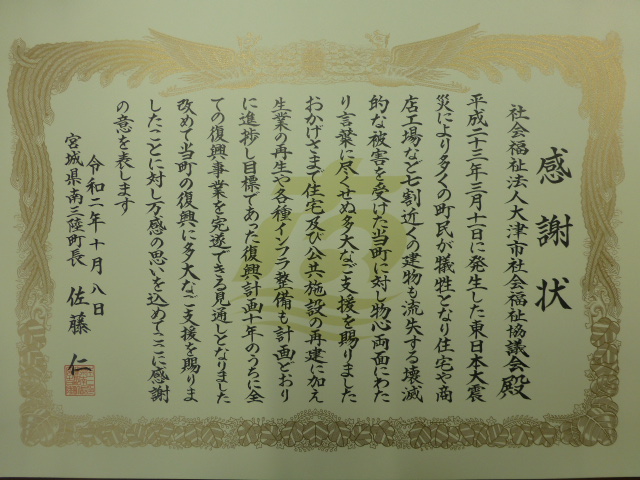 感謝状
社会福祉法人大津市社会福祉協議会殿
平成二十三年三月十一日に発生した東日本大震
災により多くの町民が犠牲となり住宅や商
店工場など七割近くの建物も流失する壊滅
的な被害を受けた当町に対し物心両面にわた
り言葉に尽くせぬ多大なご支援を賜りました
おかげさまで住宅及び公共施設の再建に加え
生業の再生や各種インフラ整備も計画どおり
に進捗し目標であった復興計画十年のうちに全
ての復興事業を完遂できる見通しとなりました
改めて当町の復興に多大なご支援を賜りま
したことに対し万感の思いを込めてここに感謝
の意を表します
令和二年十月八日
宮城県南三陸町長 佐藤 仁